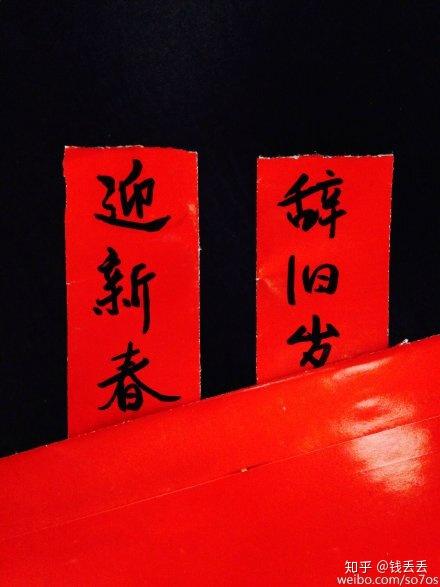 辞旧岁
迎新春
知乎 @钱丢丢
weibo.com/so7os